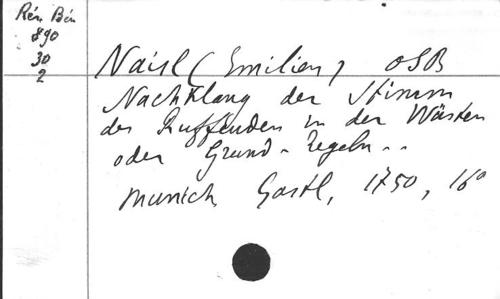 Rés. Bén
890
30
2
Naisl (Emilien) OSB
Nachklang der Stimm
des Ruffenden in der Wüsten
oder Grund-Regeln..
Munich, Gastl, 1750, 16°